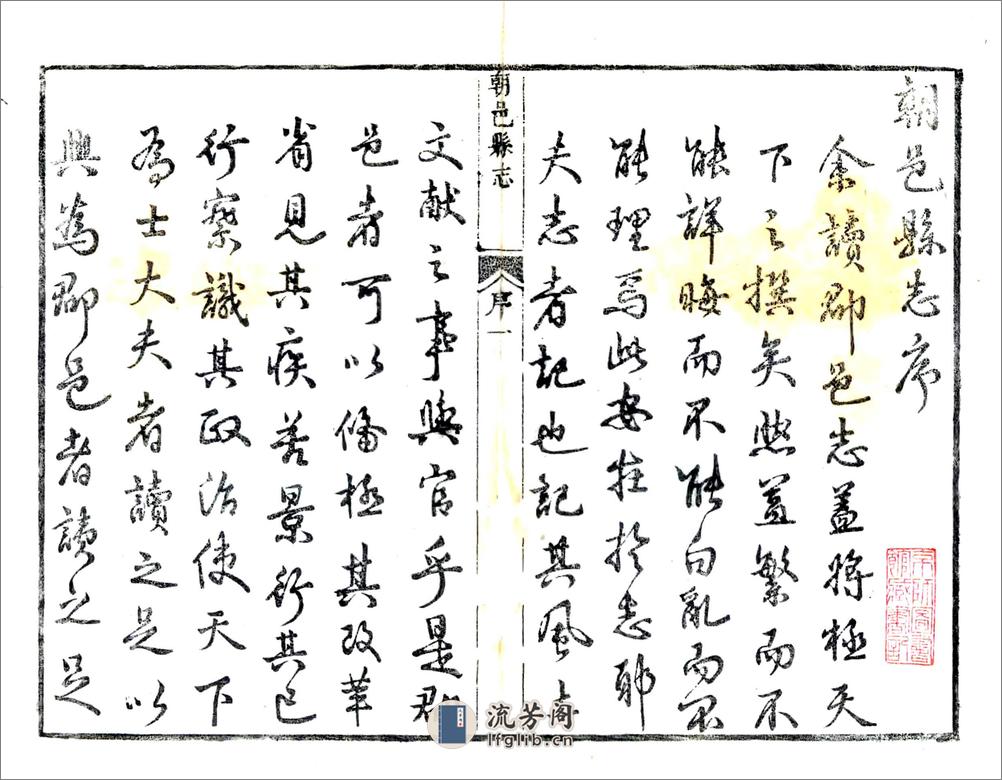 朝邑縣志序
余讀郡邑志蓋將極天
下之撰矣然益繁而不
能詳晦而不能白亂而不
能理焉此安在於志耶
夫志者記也記其風土
朝邑縣志
序一
文献之事與官乎是郡
邑者可以俻極其改革
省見其疾苦景行其已
行察識其政治使天下
為士大夫者讀之足以
興為郡邑者讀之足
流芳阁
lfglib.cn